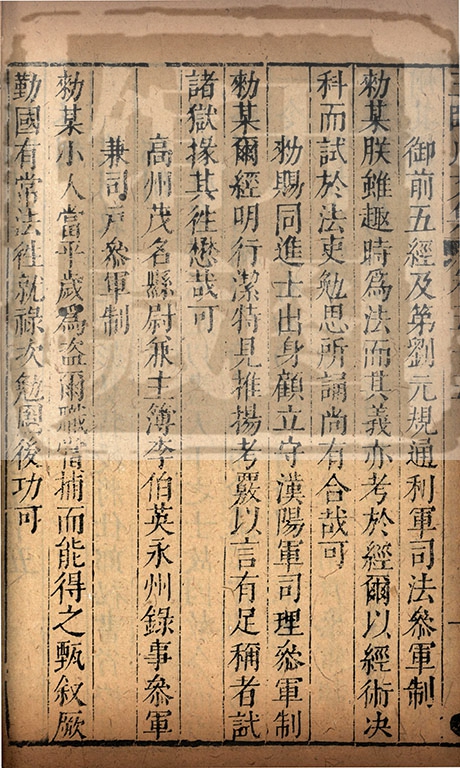 御前五經及第劉元規通利軍司法叅軍制
勑某朕雖趣時爲法而其義亦考於經爾以經術决
科而試於法吏勉思所誦尚有合哉可
勑賜同進士出身顧立守漢陽軍司理叅軍制
勑某爾經明行潔特見推揚考覈以言有足稱者試
諸獄掾其徃懋哉可
高州茂名縣尉兼主簿李伯英永州錄事叅軍
兼司戶叅軍制
勑某小人當平歲爲盜爾職當捕而能得之甄叙厥
勤國有常法徃就祿次勉圖後功可